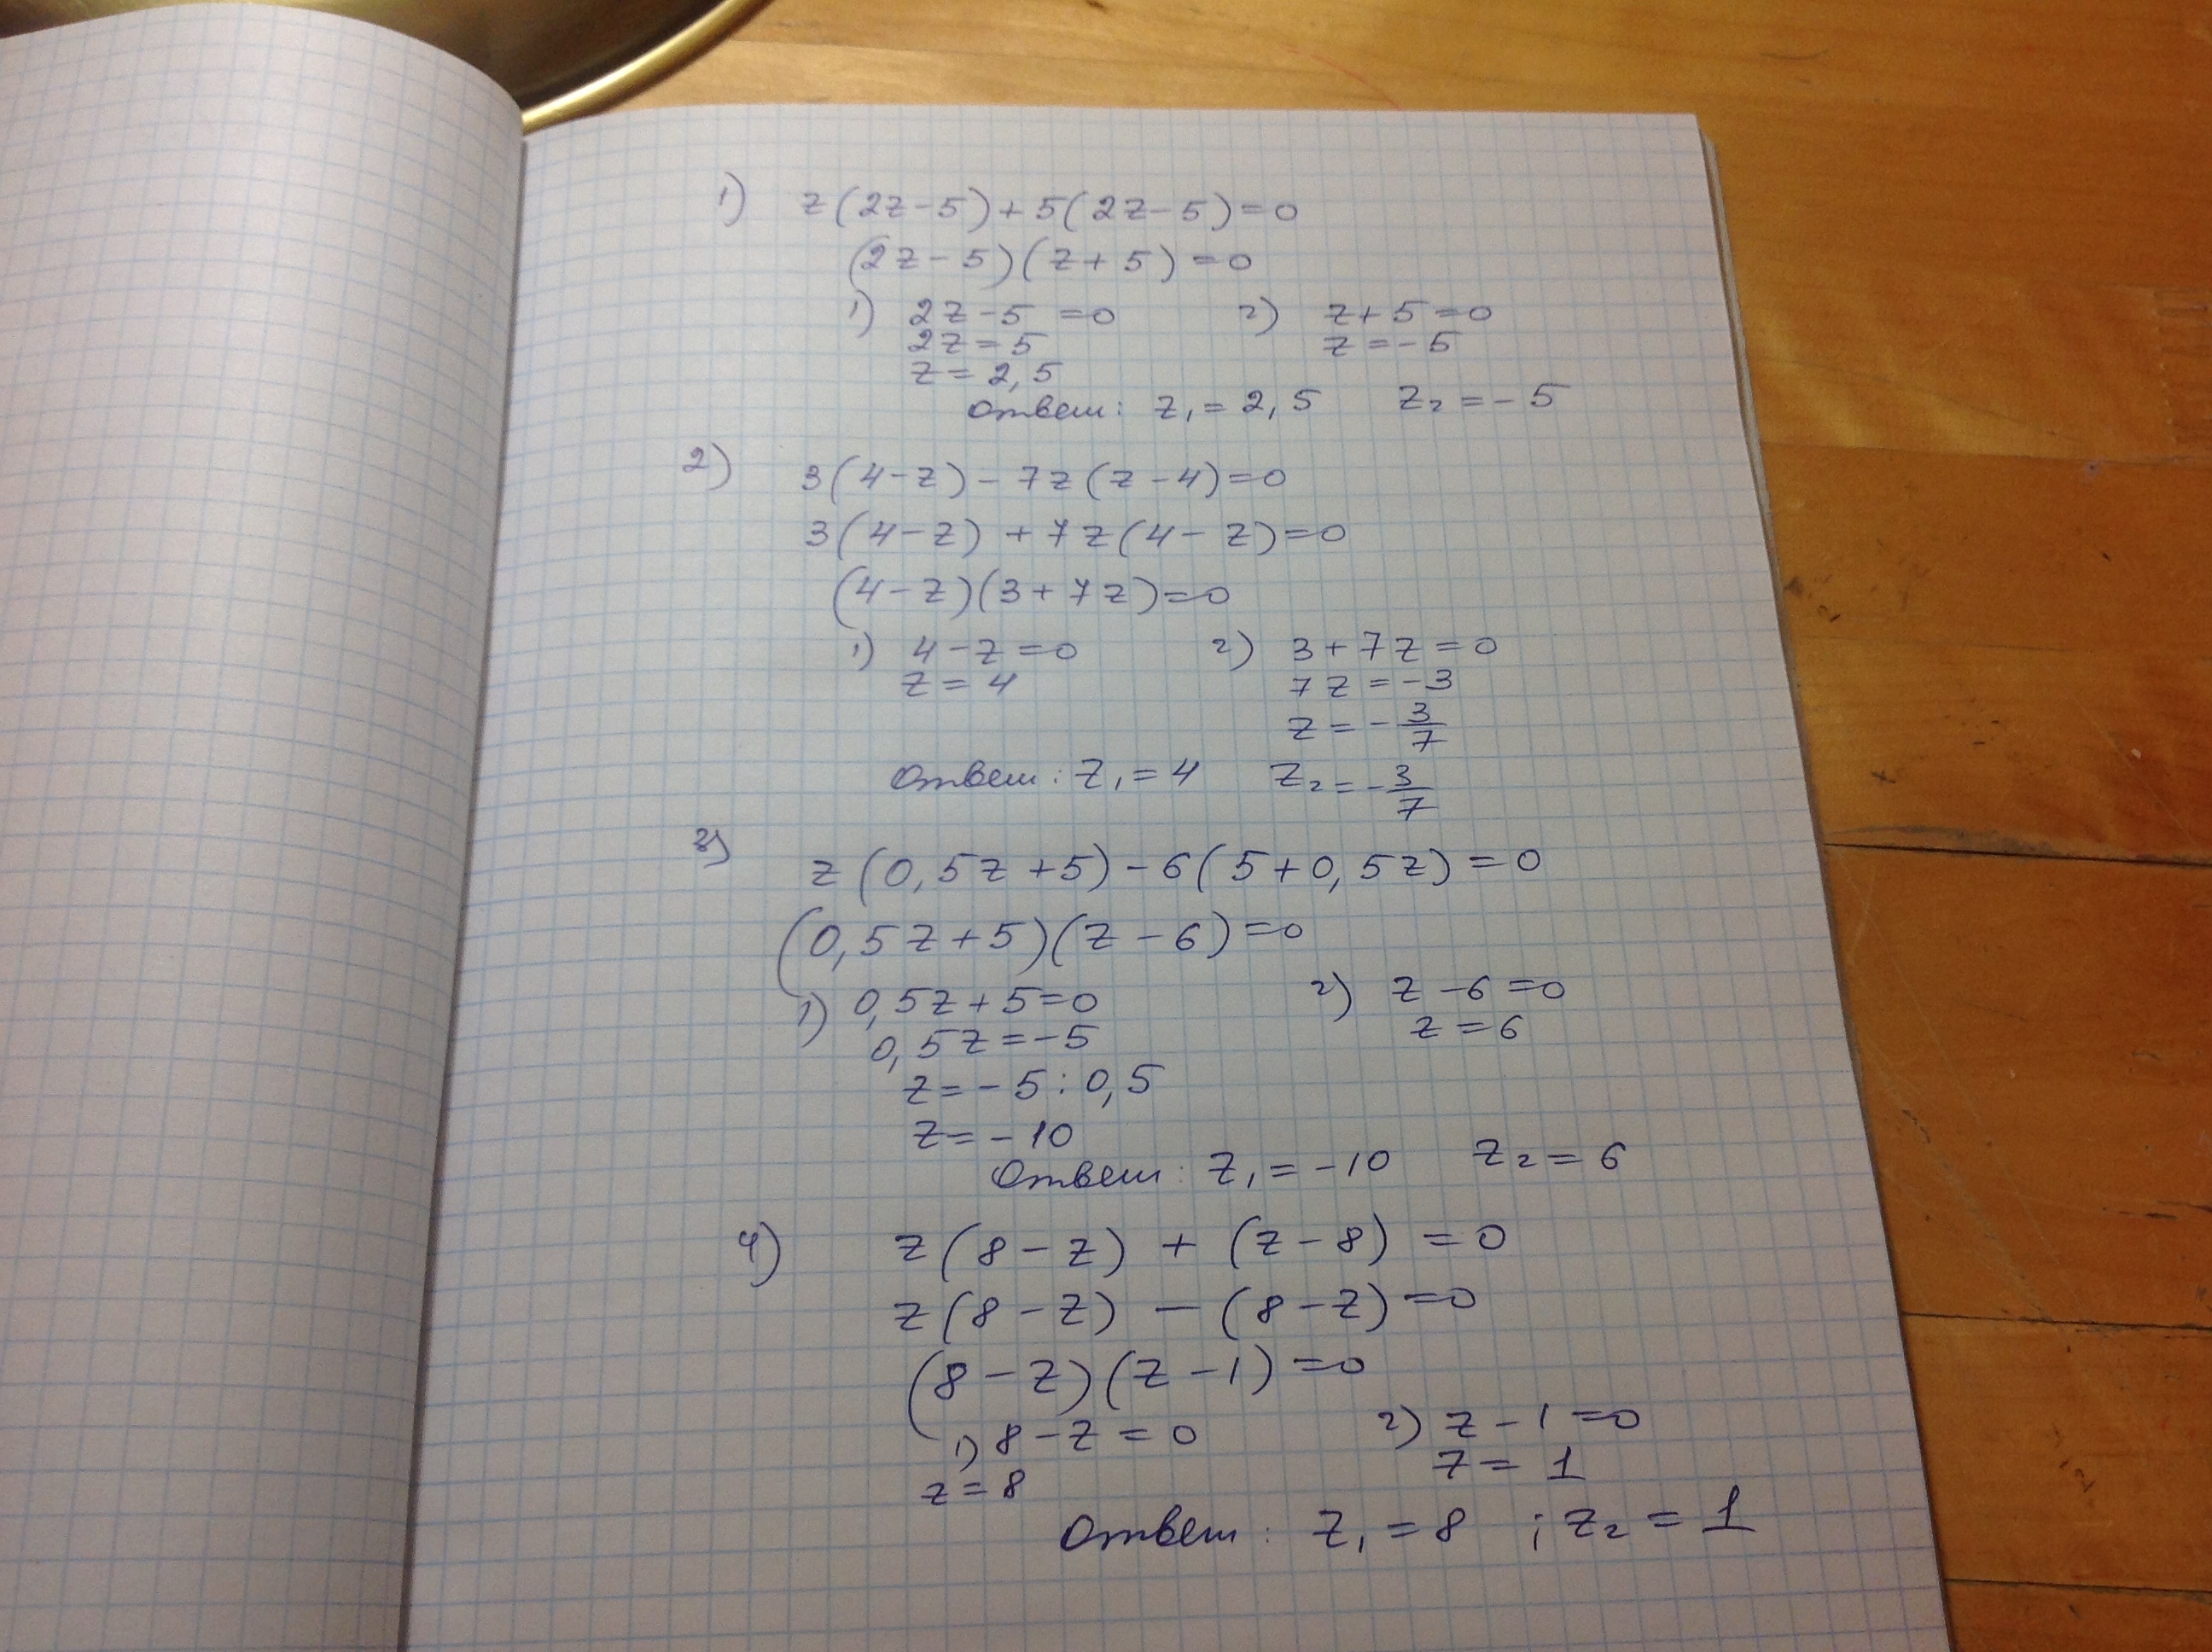 1) z(2z-5)+5(2z-5)=0
(2z-5)(z+5)=0
1) 2z-5=0 2) z+5=0
2z=5 z=-5
z=2,5
Ответ: z₁=2,5 z₂=-5
2) 3(4-z)-7z(z-4)=0
3(4-z)+7z(4-z)=0
(4-z)(3+7z)=0
1) 4-z=0 2) 3+7z=0
z=4 7z=-3
z=-3/7
Ответ: z₁=4 z₂=-3/7
3) z(0,5z+5)-6(5+0,5z)=0
(0,5z+5)(z-6)=0
1) 0,5z+5=0 2) z-6=0
0,5z=-5 z=6
z=-5:0,5
z=-10
Ответ: z₁=-10 z₂=6
4) z(8-z)+(z-8)=0
z(8-z)-(8-z)=0
(8-z)(z-1)=0
1) 8-z=0 2) z-1=0
z=8 z=1
Ответ: z₁=8 ; z₂=1